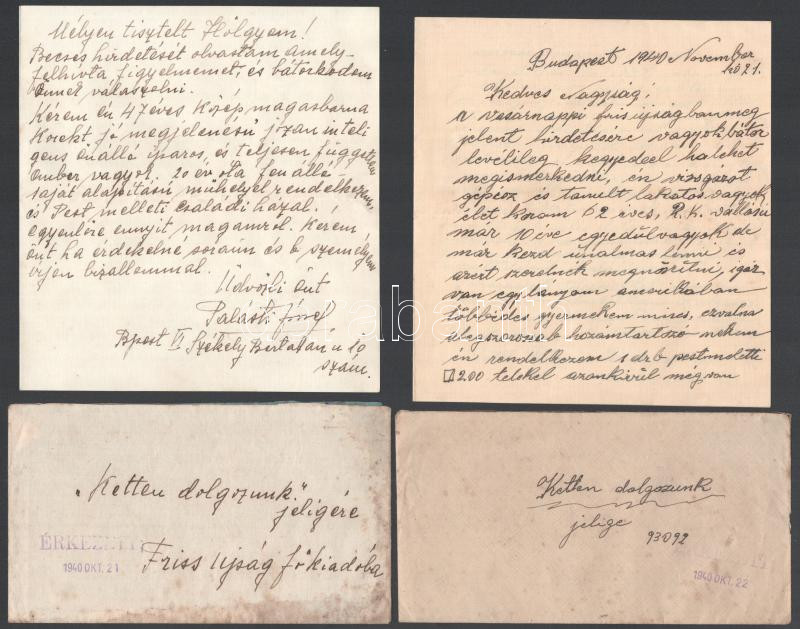 Mélyen tisztelt Hölgyem!
Becses hirdetését olvastam amely-
felhivta figyelmemet, és bátorkodom
önnek válaszolni.
Kérem én 47 éves közép magas barna
jó megjelenésü józan inteli
gens önálló iparos, és teljesen független
ember vagyok. 20 év óta fenálló-
saját alapitásu műhelyel rendelkezem,
és Pest melletti családi házal.
egyenlőre ennyit magamról. Kérem
önt ha érdekelné soraim és b. személyem
irjon bizallommal.
Üdvözli önt
Palásti József
Bpest VI Székely Bertalan u 10
szám.
Budapest 1940 November
hó 21.
Kedves Nagysád!
A vasárnappi friss újságban meg
jelent hirdetésére vagyok bátor
levélileg kegyeddel ha lehet
megismerkedni, én vizsgázot
gépész és tanult lakatos vagyok
élet korom 52 éves, R. K. vallásu
már 10 éve egyedül vagyok de
már kezd únalmas lenni és
azért szeretnék megnősülni, igaz
van egy lányom amerikában
többides gyermekem nincs, ez volna
legszorosab hozzámtartozó nekem
én rendelkezem 1 drb pestmelletti
200 telekel azonkivül még van
"Ketten dolgozunk"
jeligére
ÉRKEZETT
1940 OKT. 21
Friss Ujság főkiadóba
Ketten dolgozunk
jelige
93092
1940 OKT. 22
abanth